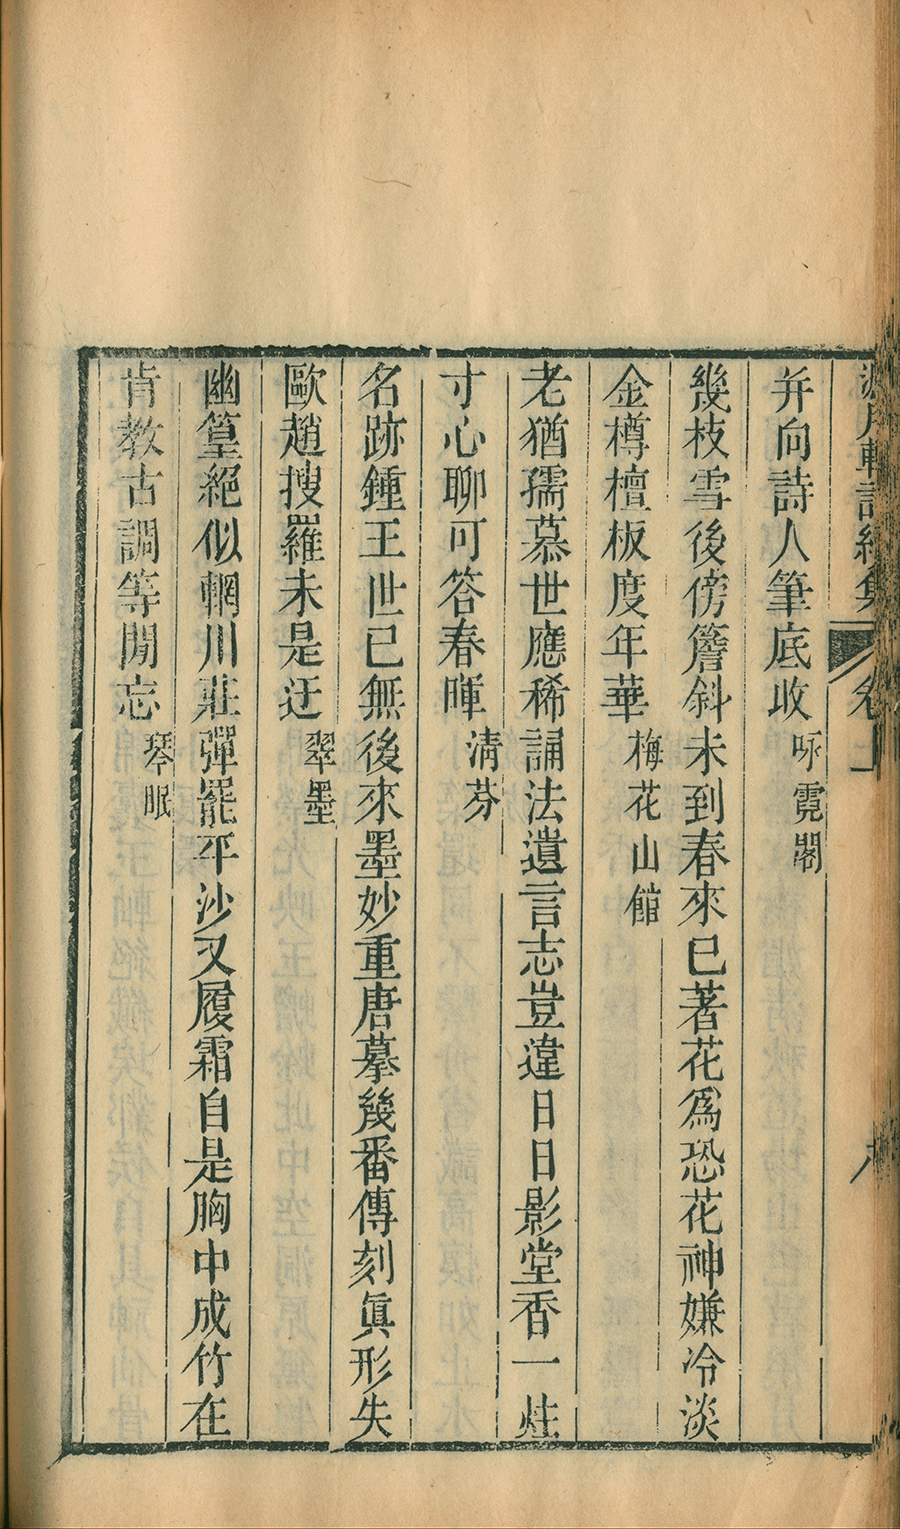 并向詩人筆底收 咏霓閣
幾枝雪後傍簷斜未到春來已著花爲恐花神嫌冷淡
金樽檀板度年華 梅花山館
老猶孺慕世應稀誦法遺言志豈違日日影堂香一炷
寸心聊可答春暉 清芬
名跡鍾王世已無後來墨妙重唐摹幾番傳刻眞形失
歐趙搜羅未是迂 翠墨
幽篁絕似輞川莊彈罷平沙又履霜自是胸中成竹在
肯教古調等閒忘 琴眠